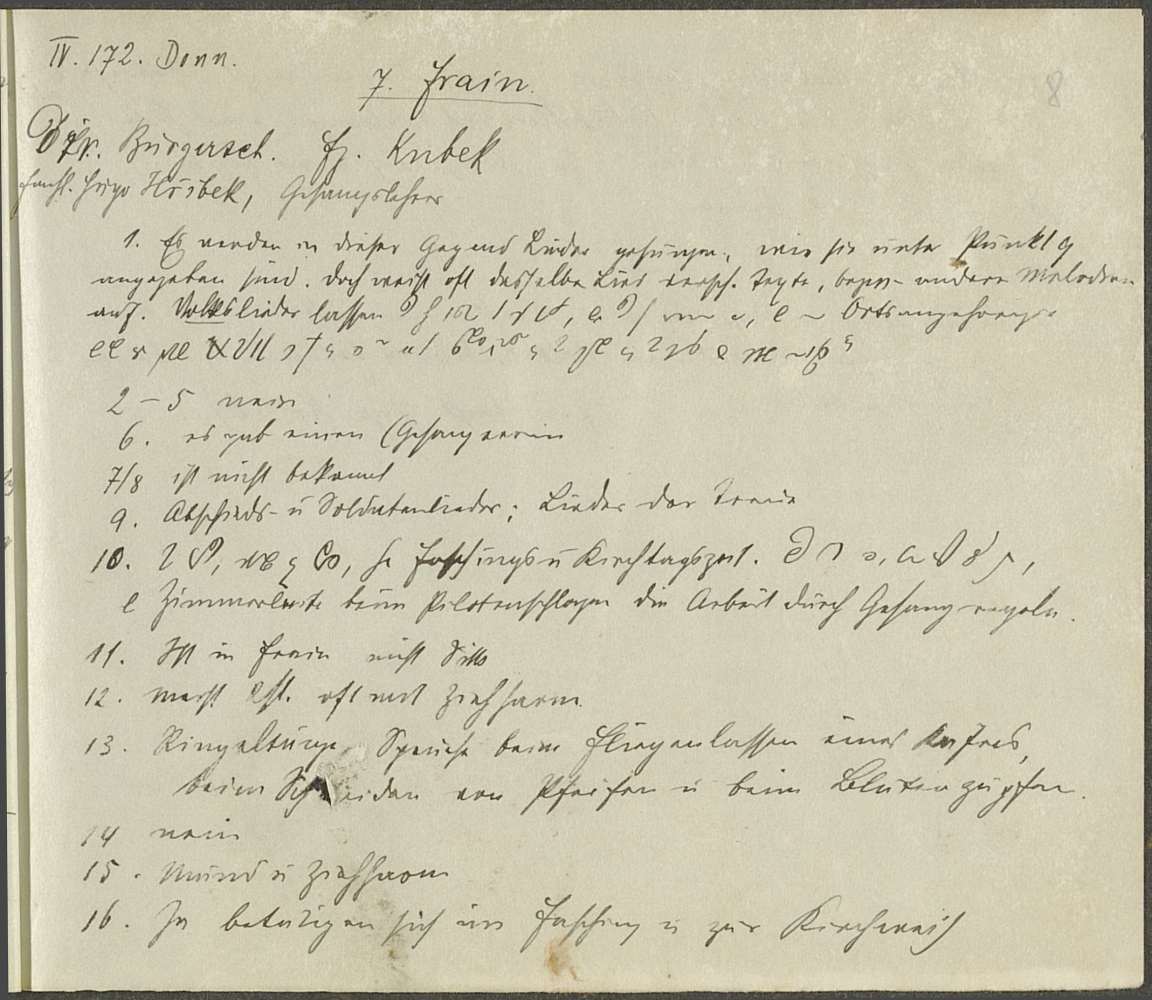 IV. 172. Donn.
8
7. Frain.
Dir. Bürgersch. Fz. Kubek
Fachl. Hugo Hribek, Gesangslehrer
1. Es werden in dieser Gegend Lieder gesungen, wie sie unter Punkt 9
angegeben sind. Doch weist oft dasselbe Lied versch. Texte, bezw. andere Melodien
auf. Volkslieder lassen
2-5 nein
6. es gab einen Gesangverein
7/8 ist nicht bekannt
9. Abschieds- u Soldatenlieder; Lieder der Treue
10. Faschings u Kirchtagszeit.
Zimmerleute beim Pilotenschlagen die Arbeit durch Gesang regeln.
11. Ist in Frain nicht Sitte
12. meist oft mit Ziehharm.
13. Ringeltänze, Sprüche beim Fliegenlassen eines Käfers,
beim Schneiden von Pfeifen u beim Blütenzupfen.
14 nein
15. Mund u Ziehharm
16. Ja betätigen sich im Fasching u zur Kirchweih